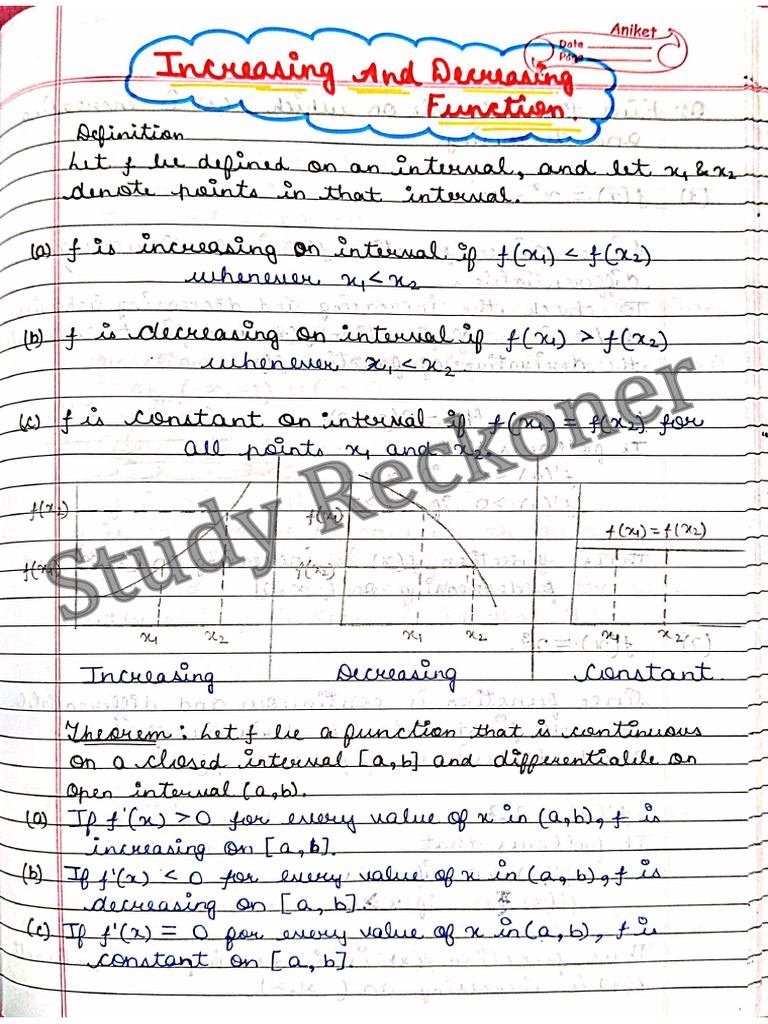 Aniket
Date
Page
Increasing And Decreasing
Function.
Definition
Let f be defined on an interval, and let x₁ & x₂
denote points in that interval.
(a) f is increasing on interval if f(x₁) < f(x₂)
whenever x₁ < x₂
(b) f is decreasing on interval if f(x₁) > f(x₂)
whenever x₁ < x₂.
(c) f is constant on interval if f(x₁) = f(x₂) for
all points x₁ and x₂.
Study Reckoner
f(x₂)
f(x₁)
x₁ x₂
Increasing
f(x₁)
f(x₂)
x₁ x₂
Decreasing
f(x₁) = f(x₂)
x₁ x₂
Constant
Theorem: Let f be a function that is continuous
on a closed interval [a,b] and differentiable on
open interval (a,b).
(a) If f'(x) > 0 for every value of x in (a,b), f is
increasing on [a,b].
(b) If f'(x) < 0 for every value of x in (a,b), f is
decreasing on [a,b].
(c) If f'(x) = 0 for every value of x in (a,b), f is
constant on [a,b].